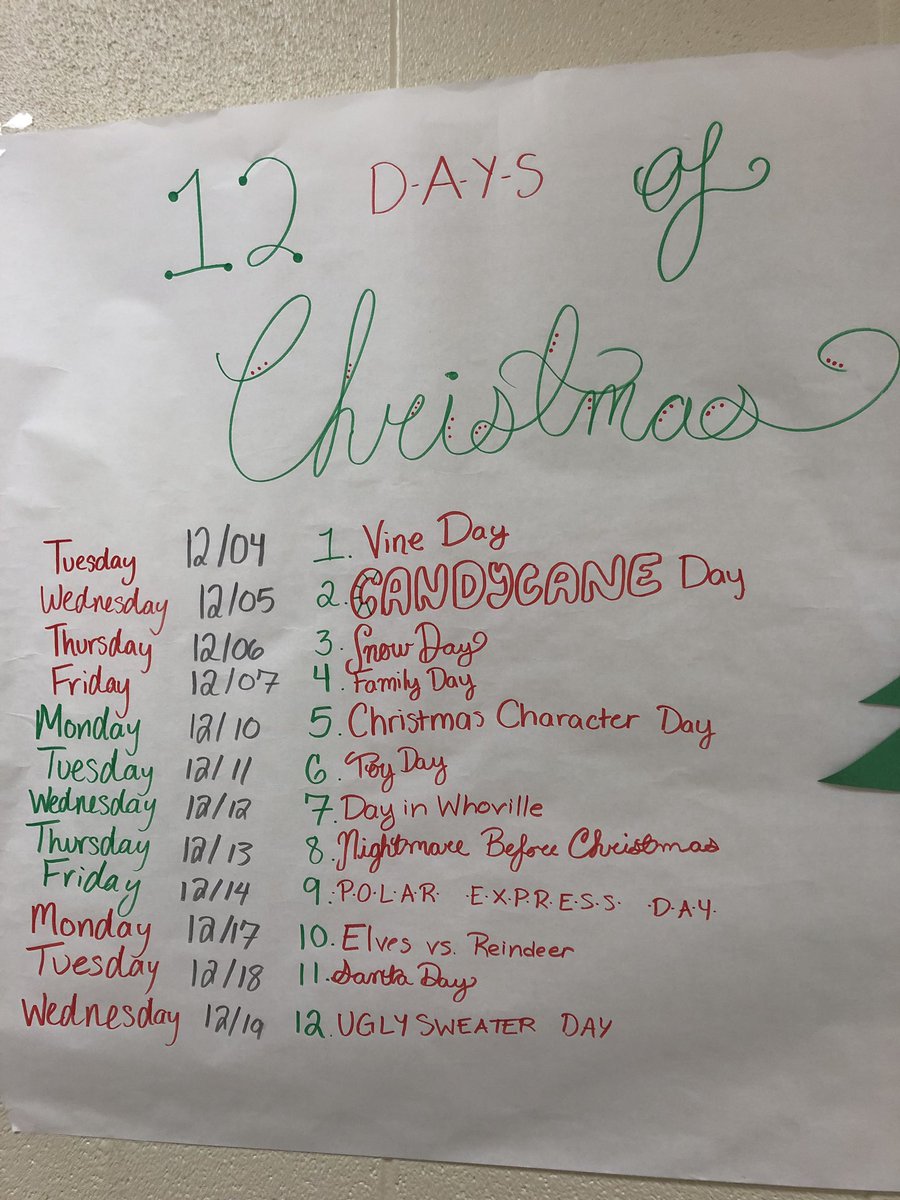 12 D-A-Y-S of
Christmas
Tuesday 12/04 1. Vine Day
Wednesday 12/05 2. CANDYCANE Day
Thursday 12/06 3. Snow Day
Friday 12/07 4. Family Day
Monday 12/10 5. Christmas Character Day
Tuesday 12/11 6. Toy Day
Wednesday 12/12 7. Day in Whoville
Thursday 12/13 8. Nightmare Before Christmas
Friday 12/14 9. P.O.L.A.R. .E.X.P.R.E.S.S. .D.A.Y.
Monday 12/17 10. Elves vs. Reindeer
Tuesday 12/18 11. Santa Day
Wednesday 12/19 12. UGLY SWEATER DAY